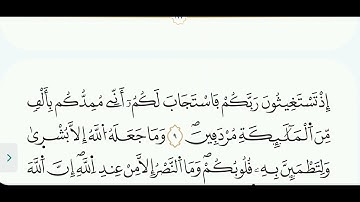 إِذْ تَسْتَغِيثُونَ رَبَّكُمْ فَاسْتَجَابَ لَكُمُۥٓ أَنِّے مُمِدُّكُم بِأَلْفٖ
مِّنَ اَ۬لْمَلَٰٓئِكَةِ مُرْدَفِينَۖ ٩ وَمَا جَعَلَهُ اُ۬للَّهُ إِلَّا بُشْر۪يٰ
وَلِتَطْمَئِنَّ بِهِۦ قُلُوبُكُمْۖ وَمَا اَ۬لنَّصْرُ إِلَّا مِنْ عِندِ اِ۬للَّهِۖ إِنَّ اَ۬للَّهَ